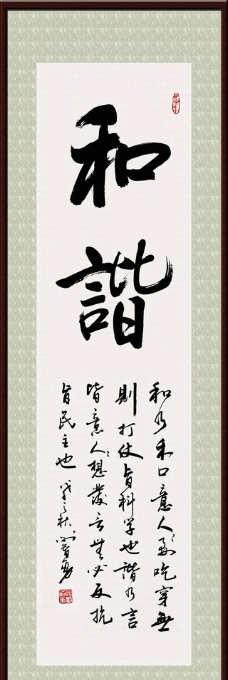 和諧
和乃禾口意人要吃穿無
則打仗旨科学也諧乃言
皆意人人想發言無必反抗
旨民主也